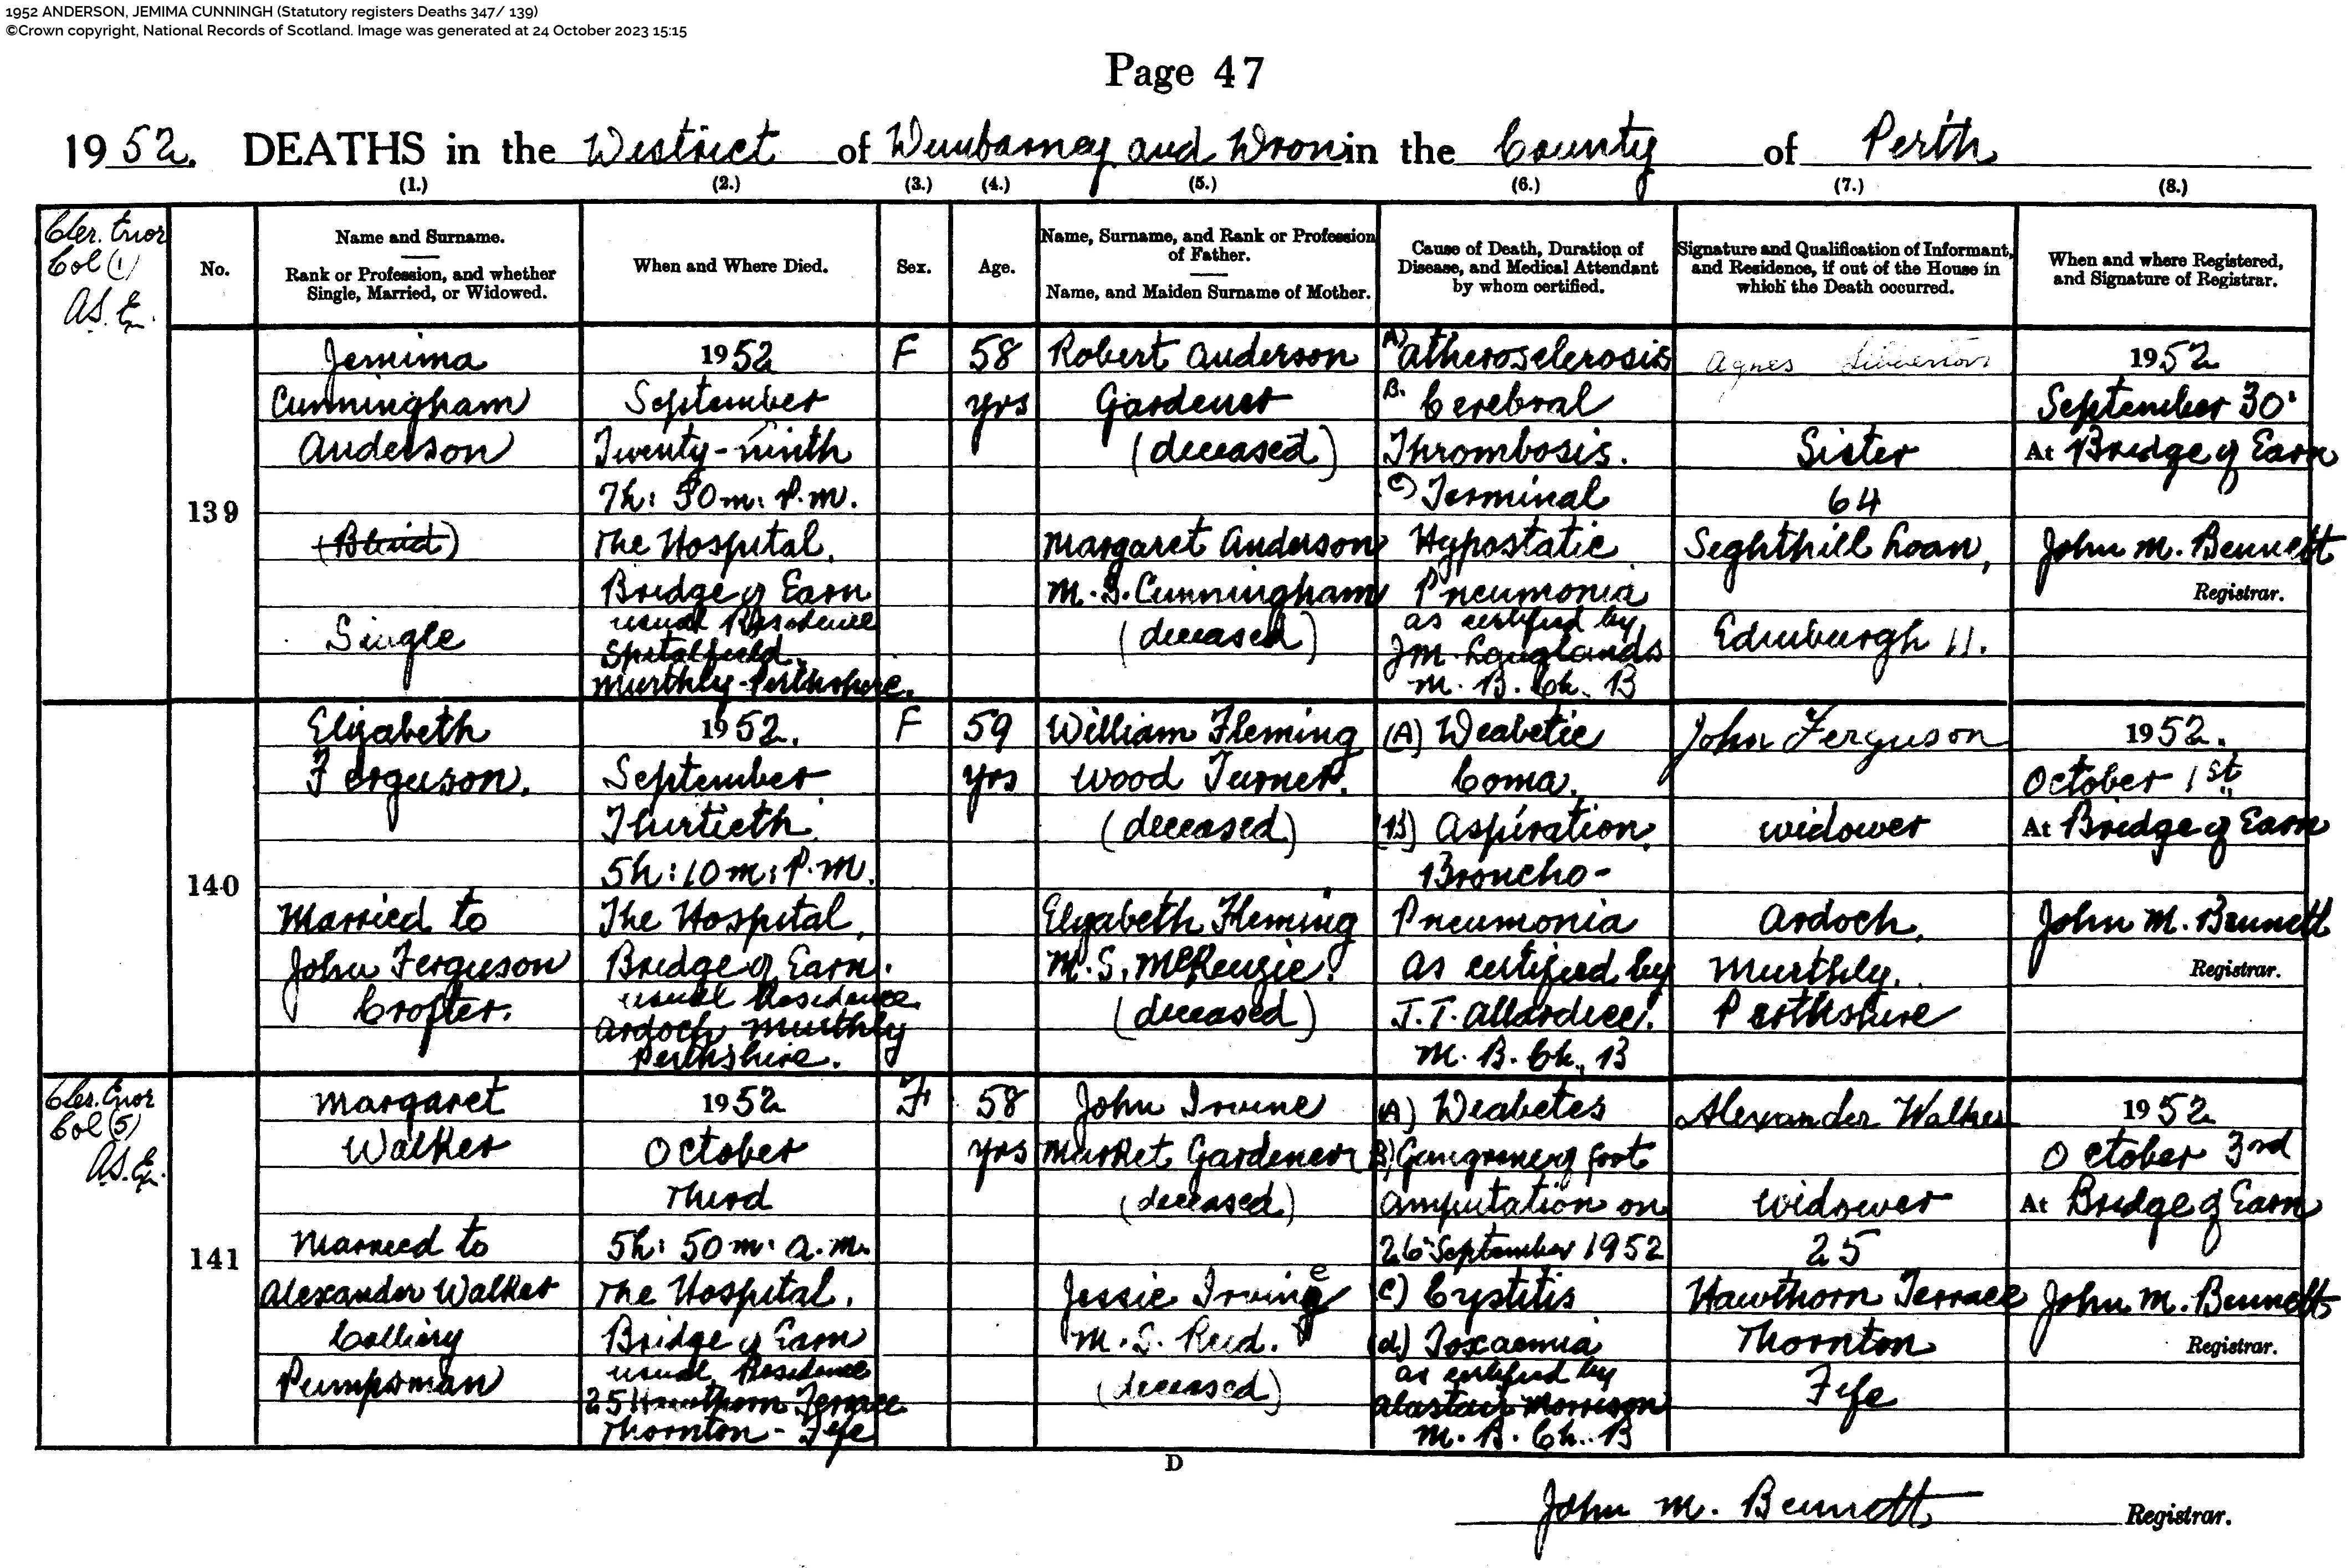 1952 ANDERSON, JEMIMA CUNNINGH (Statutory registers Deaths 347/ 139)
©Crown copyright, National Records of Scotland. Image was generated at 24 October 2023 15:15
Page 47
1952. DEATHS in the District of Dunbarney and Dron in the County of Perth
(1.) (2.) (3.) (4.) (5.) (6.) (7.) (8.)
Cler. Error
Col (1)
A.S.
No.
Name and Surname.
Rank or Profession, and whether
Single, Married, or Widowed.
When and Where Died.
Sex.
Age.
Name, Surname, and Rank or Profession
of Father.
Name, and Maiden Surname of Mother.
Cause of Death, Duration of
Disease, and Medical Attendant
by whom certified.
Signature and Qualification of Informant,
and Residence, if out of the House in
which the Death occurred.
When and where Registered,
and Signature of Registrar.
139
Jemima
Cunningham
Anderson
(Blind)
Single
1952
September
Twenty-ninth
7h: 50m: P.M.
The Hospital,
Bridge of Earn
usual Residence
Spitalfield.
Murthly-Perthshire.
F
58
yrs
Robert Anderson
Gardener
(deceased)
Margaret Anderson
M.S. Cunningham
(deceased)
A) Atherosclerosis
B. Cerebral
Thrombosis.
C) Terminal
Hypostatic
Pneumonia
as certified by
J M. Langlands
M. B. Ch. B
Agnes
Sister
64
Sighthill Loan,
Edinburgh 11.
1952
September 30
At Bridge of Earn
John M. Bennett
Registrar.
140
Elizabeth
Ferguson.
Married to
John Ferguson
Crofter.
1952.
September
Thirtieth
5h:10m:P.M.
The Hospital,
Bridge of Earn.
usual Residence
Ardoch Murthly
Perthshire.
F
59
yrs
William Fleming
Wood Turner.
(deceased)
Elizabeth Fleming
M.S. McKenzie.
(deceased)
(A) Diabetic
Coma.
(B) Aspiration
Broncho-
Pneumonia
As certified by
J.T. Allardice.
M. B. Ch. B
John Ferguson
widower
Ardoch,
Murthly.
Perthshire
1952.
October 1st
At Bridge of Earn
John M. Bennett
Registrar.
Cler. Error
Col (5)
A.S.
141
Margaret
Walker
Married to
Alexander Walker
Colliery
Pumpsman
1952
October
Third
5h: 50m: a.m.
The Hospital.
Bridge of Earn
usual Residence
25 Hawthorn Terrace
Thornton - Fife
F
58
yrs
John Irvine
Market Gardener
(deceased)
Jessie Irvine
M. S. Reid.
(deceased)
(A) Diabetes
B) Gangrene of foot
amputation on
26 September 1952
C) Cystitis
(d) Toxaemia
as certified by
Alastair Morrison
M. B. Ch. B
Alexander Walker
widower
25
Hawthorn Terrace
Thornton
Fife
1952
October 3rd
At Bridge of Earn
John M. Bennett
Registrar.
D
John M. Bennett Registrar.